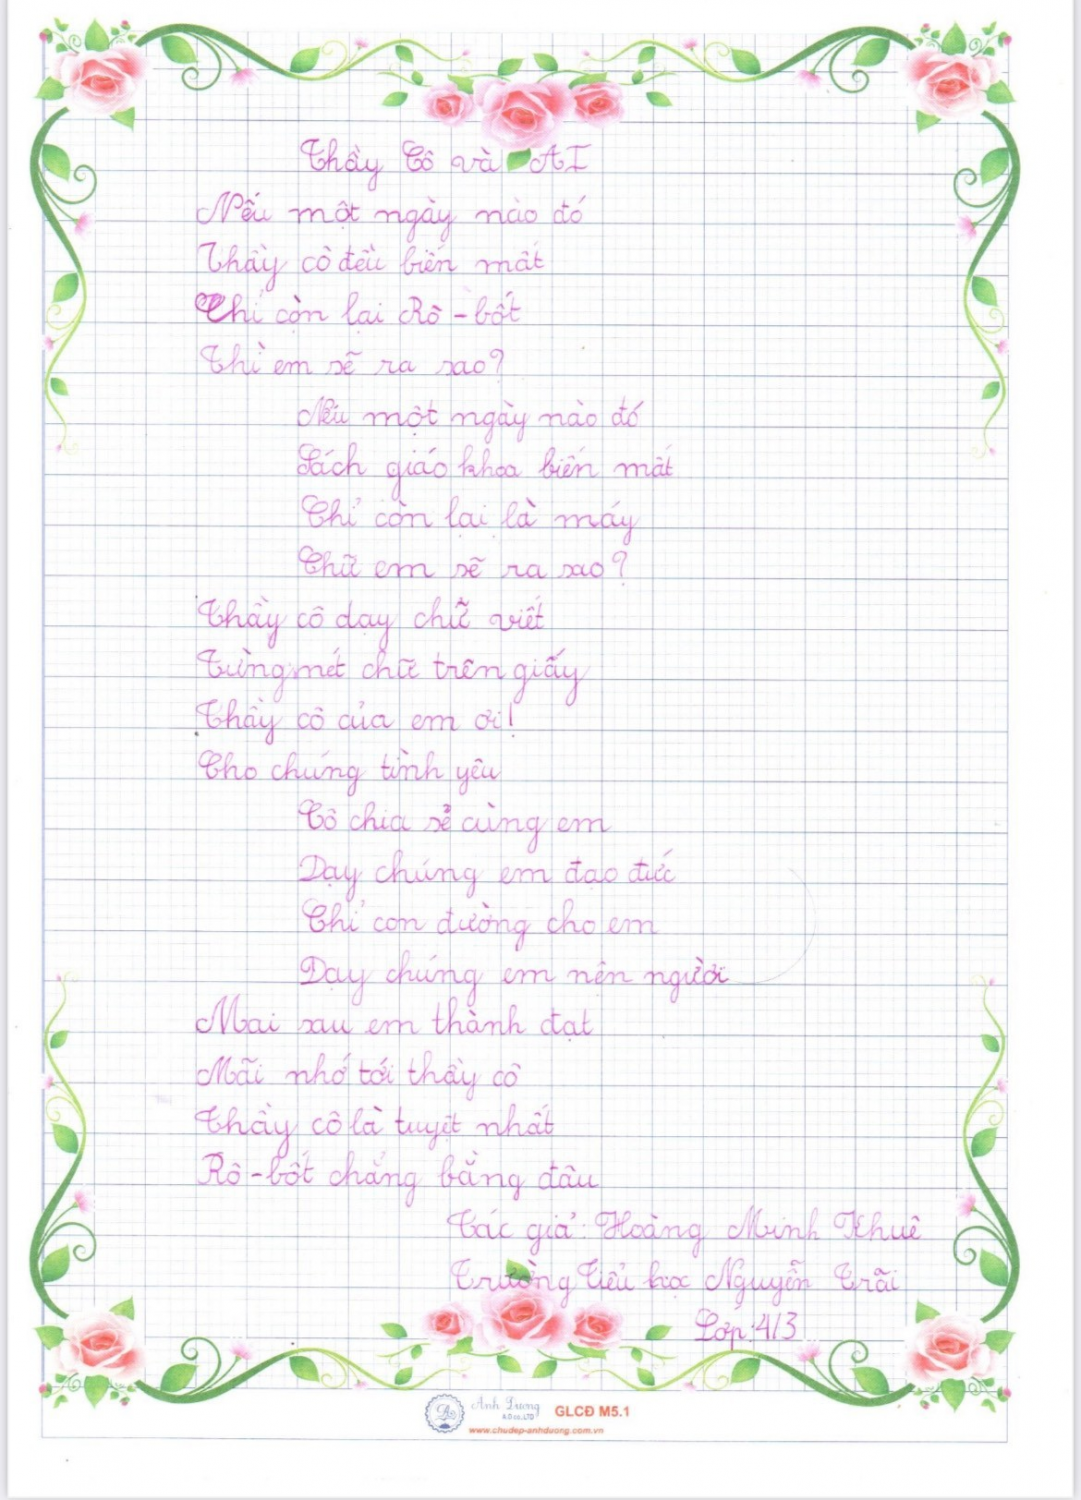 Thầy Cô và AI
Nếu một ngày nào đó
Thầy cô đều biến mất
Chỉ còn lại Rô-bốt
Thì em sẽ ra sao?
Nếu một ngày nào đó
Sách giáo khoa biến mất
Chỉ còn lại là máy
Chữ em sẽ ra sao?
Thầy cô dạy chữ viết
Từng nét chữ trên giấy
Thầy cô của em ơi!
Cho chúng tình yêu
Cô chia sẻ cùng em
Dạy chúng em đạo đức
Chỉ con đường cho em
Dạy chúng em nên người
Mai sau em thành đạt
Mãi nhớ tới thầy cô
Thầy cô là tuyệt nhất
Rô-bốt chẳng bằng đâu
Tác giả: Hoàng Minh Khuê
Trường Tiểu học Nguyễn Trãi
Lớp: 4/3
Anh Dương
A.D co.,LTD
GLCĐ M5.1
www.chudep-anhduong.com.vn